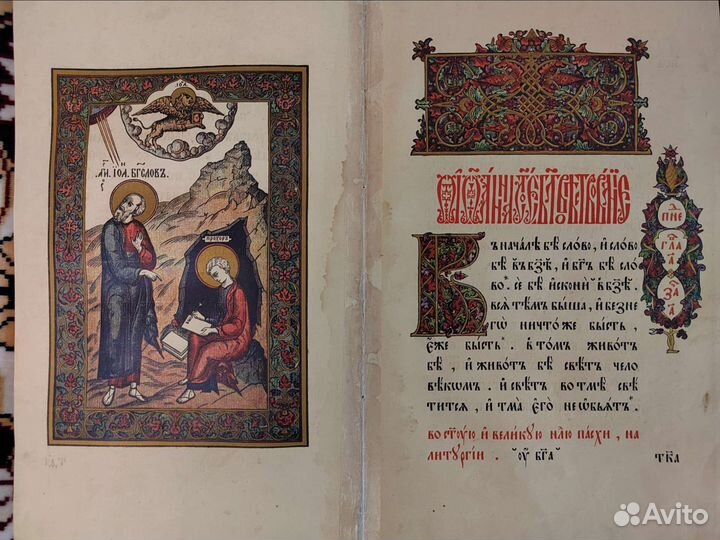 іѡа
.А҃ГІ. ІѠА. БГ҃СЛОВЪ.
ПРОХОРЪ
Въ нача́лѣ бѣ̀ сло́во, и҆ сло́во
бѣ̀ къ бз҃ѣ, и҆ бг҃ъ бѣ̀ сло́
во. се́ бѣ̀ и҆сконѝ къ бз҃ѣ.
вся̀ тѣ́мъ бы́ша, и҆ без̾ не
гѡ̀ ничто́ же бы́сть,
є҆́же бы́сть. в̾ то́мъ живо́тъ
бѣ̀, и҆ живо́тъ бѣ̀ свѣ́тъ чело
вѣ́кѡмъ. и҆ свѣ́тъ во тмѣ̀ свѣ́
тится, и҆ тма̀ є҆гѡ̀ не ѡ҆б̾ѧ́тъ.
во ст҃ꙋ́ю и҆ вели́кꙋю нл҃ю па́схи, на
литꙋргі́и. ᲂу҆ бг҃а
тк҃а
Avito